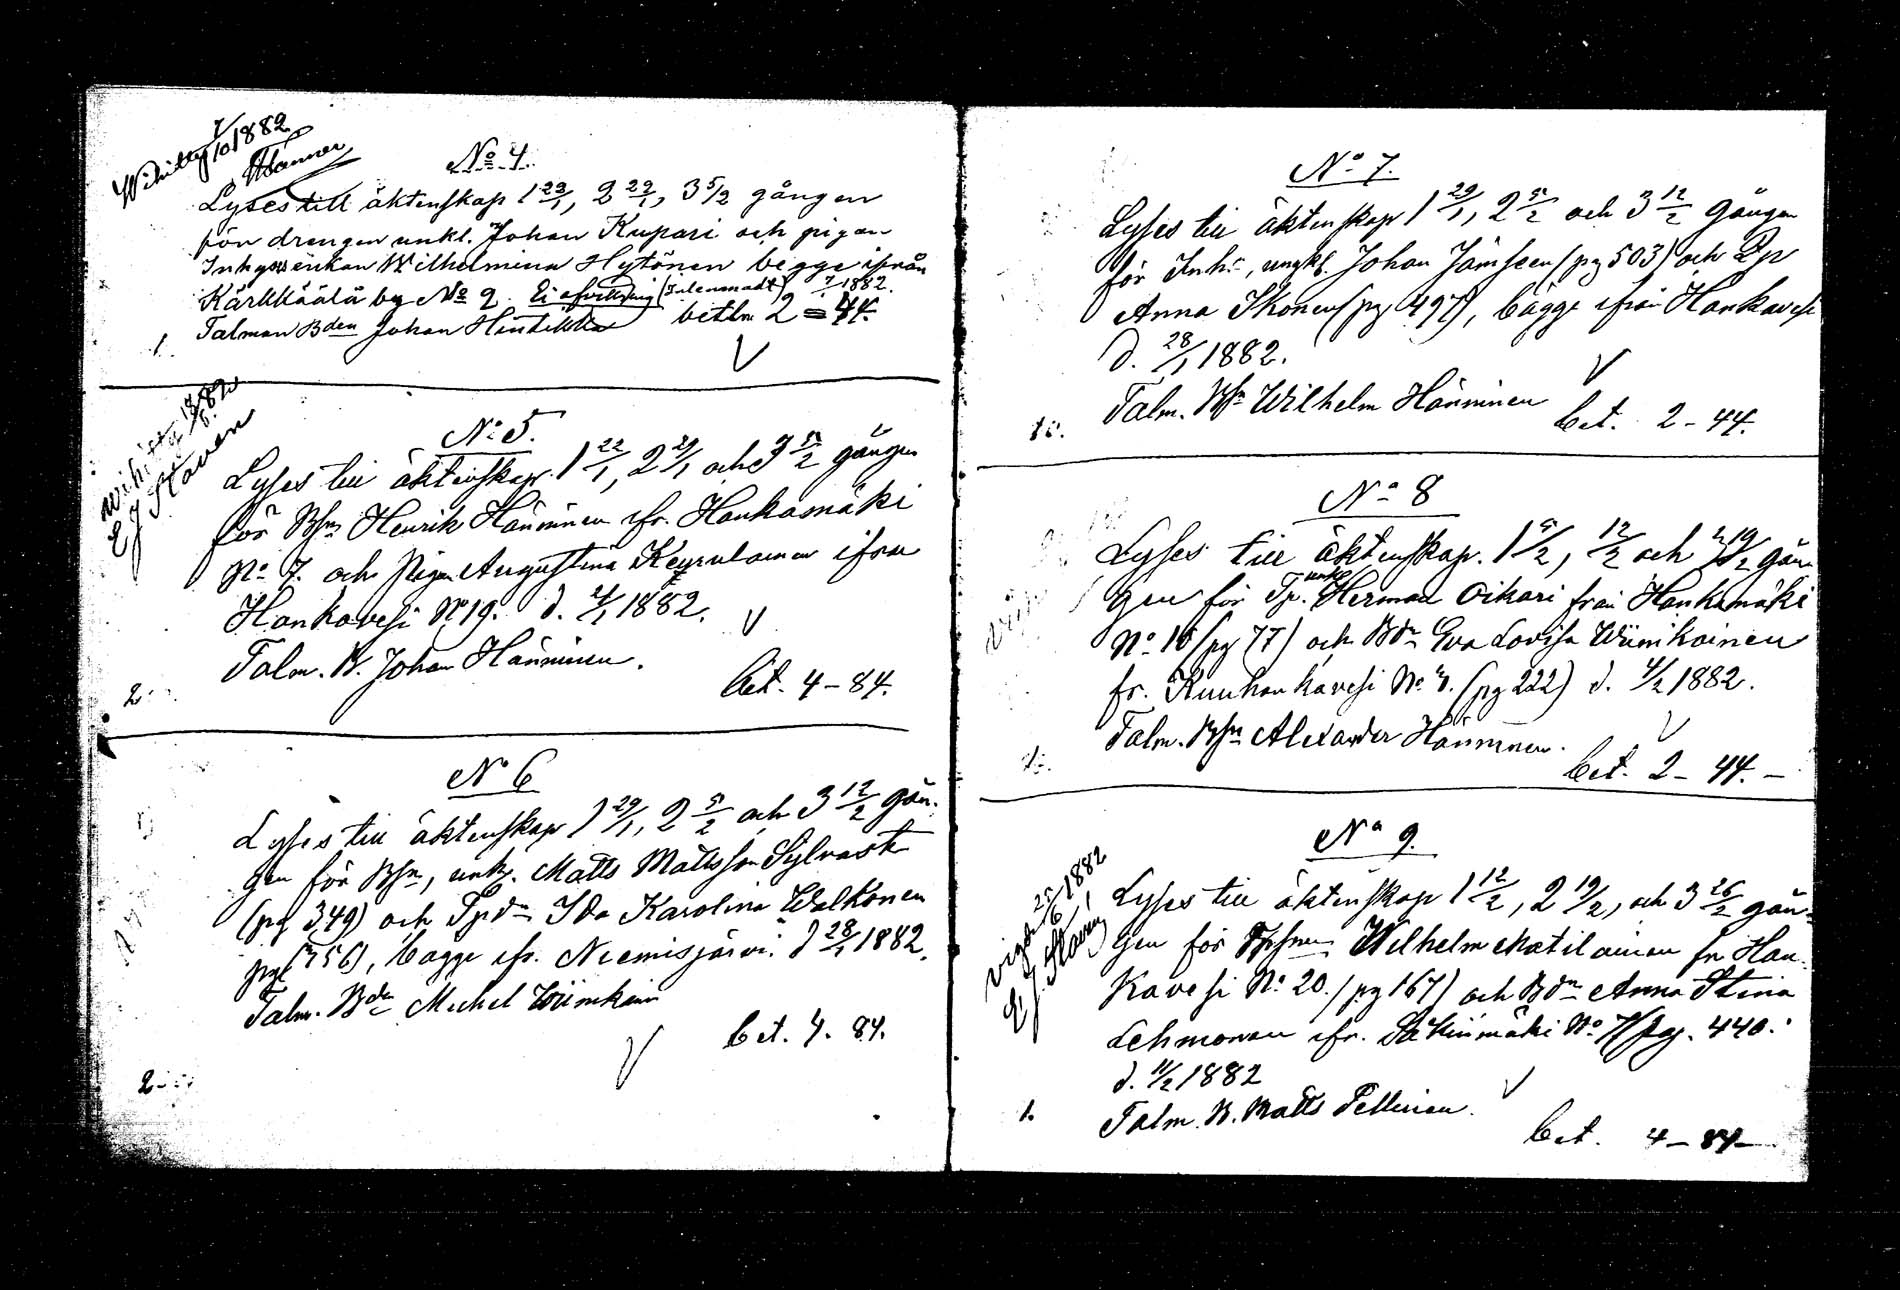 Wihitty 7/10 1882
No 4.
Lyses till äktenskap 1 22/1, 2 29/1, 3 5/2 gången
för drengen unkl. Johan Kupari och pigan
Inhyses enkan Wilhelmina Hytönen begge ifrån
Kärkkäälä by No 2. 7/1 1882.
Talman Bden Johan Hintikka betlr 2 = 44.
1.
No 5.
Lyses till äktenskap 1 22/1, 2 29/1 och 3 5/2 gången
för Bsn Henrik Hänninen ifr. Hankamäki
No 7. och Pigan Augustina ifrån
Hankavesi No 19. d. 21/1 1882.
Talm. B. Johan Hänninen.
2
bet. 4 - 84.
No 6
Lyses till äktenskap 1 29/1, 2 5/2 och 3 12/2 gån-
gen för Bsn, unk. Matts Mattsson Sylvast
(pg 349) och Tpdr Ida Karolina Walkonen
pg 756), bägge ifr. Niemisjärvi d 28/1 1882.
Talm. Bdn Michel
bet. 4. 84.
2
No 7.
Lyses till äktenskap 1 29/1, 2 5/2 och 3 12/2 gången
för Inhs, ungk. Johan Jämseen (pg 503) och Dr
Anna Ikonen (pg 497), bägge ifrån Hankavesi
d. 28/1 1882.
Talm. Bsn Wilhelm Hänninen
bet. 2 - 44.
No 8
Lyses till äktenskap. 1 5/2, 12/2 och 19/2 gån-
gen för Tp. unk. Herman Oikari från Hankamäki
No 16 (pg 77) och Bdr Eva Lovisa Wiinikainen
fr. Kuuhankavesi No 4. (pg 222) d. 4/2 1882.
Talm. Bsn Alexander Hänninen.
bet. 2 - 44. -
No 9.
Lyses till äktenskap 1 12/2, 2 19/2, och 3 26/2 gån-
gen för Wilhelm Matilainen fr Han-
kavesi No 20. (pg 167) och Bdr Anna Stina
Lehmonen ifr. No 7 (pg. 440.
d. 11/2 1882
1.
Talm. B. Matts Pellinen.
bet. 4 - 84 -